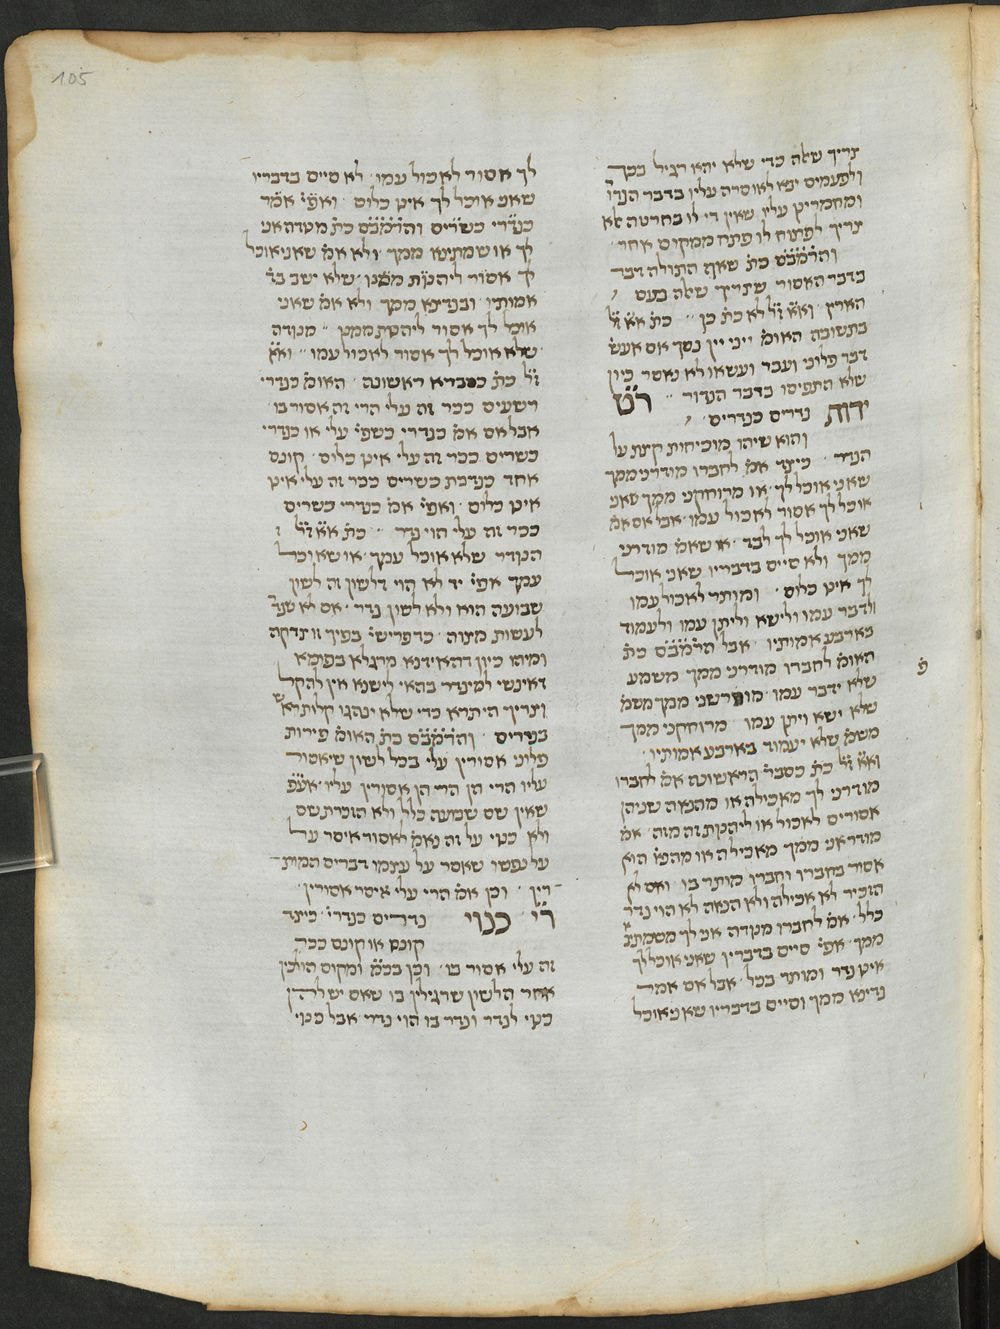 105
צריך שאלה כדי שלא יהא רגיל בכך
ולפעמים יצא לאוסרה עליו בדבר הנדו
ומחמרינן עליו שאין די לו בחרטה אלא
צריך לפתוח לו פתח ממקום אחר
והר״מב״ם כת׳ שאף התולה דבר
בדבר האסור שצריך שאלה בעם
הארץ ואא״ ז״ל לא כת׳ כן כת׳ א״א ז״ל
בתשובה האומ׳ ייני יין נסך אם אעש׳
דבר פלוני ועבר ועשאו לא נאסר כיון
שלא התפיסו בדבר הנדור ר״ט
ידות נדרים כנדרים
והוא שיהו מוכיחות קצת על
הנדר כיצד אמ׳ לחברו מודרני ממך
שאני אוכל לך או מרוחקני ממך שאני
אוכל לך אסור לאכול עמו אבל אם אמ׳
שאני אוכל לך לבד או שאמ׳ מודרני
ממך ולא סיים בדבריו שאני אוכל
לך אינו כלום ומותר לאכול עמו
ולדבר עמו ולישא וליתן עמו ולעמוד
בארבע אמותיו אבל הר״מב״ם כת׳
האומ׳ לחברו מודרני ממך משמע
שלא ידבר עמו מופרשני ממך משמ׳
שלא ישא ויתן עמו מרוחקני ממך
משמ׳ שלא יעמוד בארבע אמותיו
וא״א ז״ל כת׳ כסבר׳ הראשונה אמ׳ לחברו
מודרני לך מאכילה או מהנאה שניהן
אסורים לאכול או ליהנות זה מזה אמ׳
מודר אני ממך מאכילה או מהנא׳ הוא
אסור בחברו וחברו מותר בו ואם לא
הזכיר לא אכילה ולא הנאה לא הוי נדר
כלל אמ׳ לחברו מנודה אני לך משמתינא
ממך אפי׳ סיים בדבריו שאני אוכל לך
אינו נדר ומותר בכל אבל אם אמר
נדינא ממך וסיים בדבריו שאני אוכל
לך אסור לאכול עמו לא סיים בדבריו
שאני אוכל לך אינו כלום ואפי׳ אמר
כנדרי כשרים והר״מב״ם כת׳ מנודה אני
לך או שמתינא ממך ולא אמ׳ שאני אוכל
לך אסור ליהנות ממנו שלא ישב בד׳
אמותיו ובנדינא ממך ולא אמ׳ שאני
אוכל לך אסור ליהנות ממנו מנודה
שלא אוכל לך אסור לאכול עמו וא״א
ז״ל כת׳ כסברא ראשונה האומ׳ כנדרי
רשעים ככר זה עלי הרי זה אסור בו
אבל אם אמ׳ כנדרי כשפי׳ עלי או כנדרי
כשרים ככר זה עלי אינו כלום קונם
אחד כנדבת כשרים ככר זה עלי אינו
אינו כלום ואפי׳ אמ׳ כנדרי כשרים
ככר זה עלי הוי נדר כת׳ א״א ז״ל
הנודר שלא אוכל עמך או שאוכל
עמך אפי׳ יד לא הוי דלשון זה לשון
שבועה הוא ולא לשון נדר אם לא שנד׳
לעשות מצוה כדפרישי׳ בפיך זו צדקה
ומיהו כיון דהאידנא מרגלא בפומא
דאינשי למינדר בהאי לישנא אין להקל
וצריך היתרא כדי שלא ינהגו קלות ראש
בנדרים והר״מב״ם כת׳ האומ׳ פירות
פלוני אסורין עלי בכל לשון שיאסור
עליו הרי הן הרי הן אסורין עליו אע״פ
שאין שם שבועה כלל ולא הזכרת שם
ולא כנוי על זה נאמ׳ לאסור איסר על
על נפשו שאסר על עצמו דברים המות־
־רין וכן אמ׳ הרי עלי איסר אסורין
ר״י כנוי נדרים כנדרי׳ כיצד
קונם או קונס ככר
זה עלי אסור בו וכן בכמ׳ ומקום הולכין
אחר הלשון שרגילין בו שאם יש להן
כנוי לנדר ונדר בו הוי נדר אבל כנוי